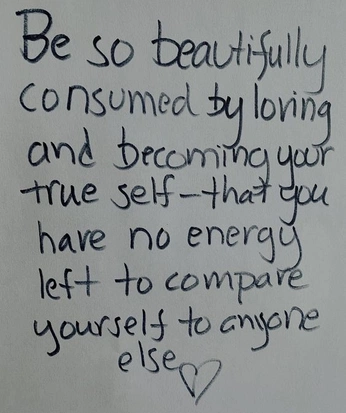 Be so beautifully
consumed by loving
and becoming your
true self-that you
have no energy
left to compare
yourself to anyone
else